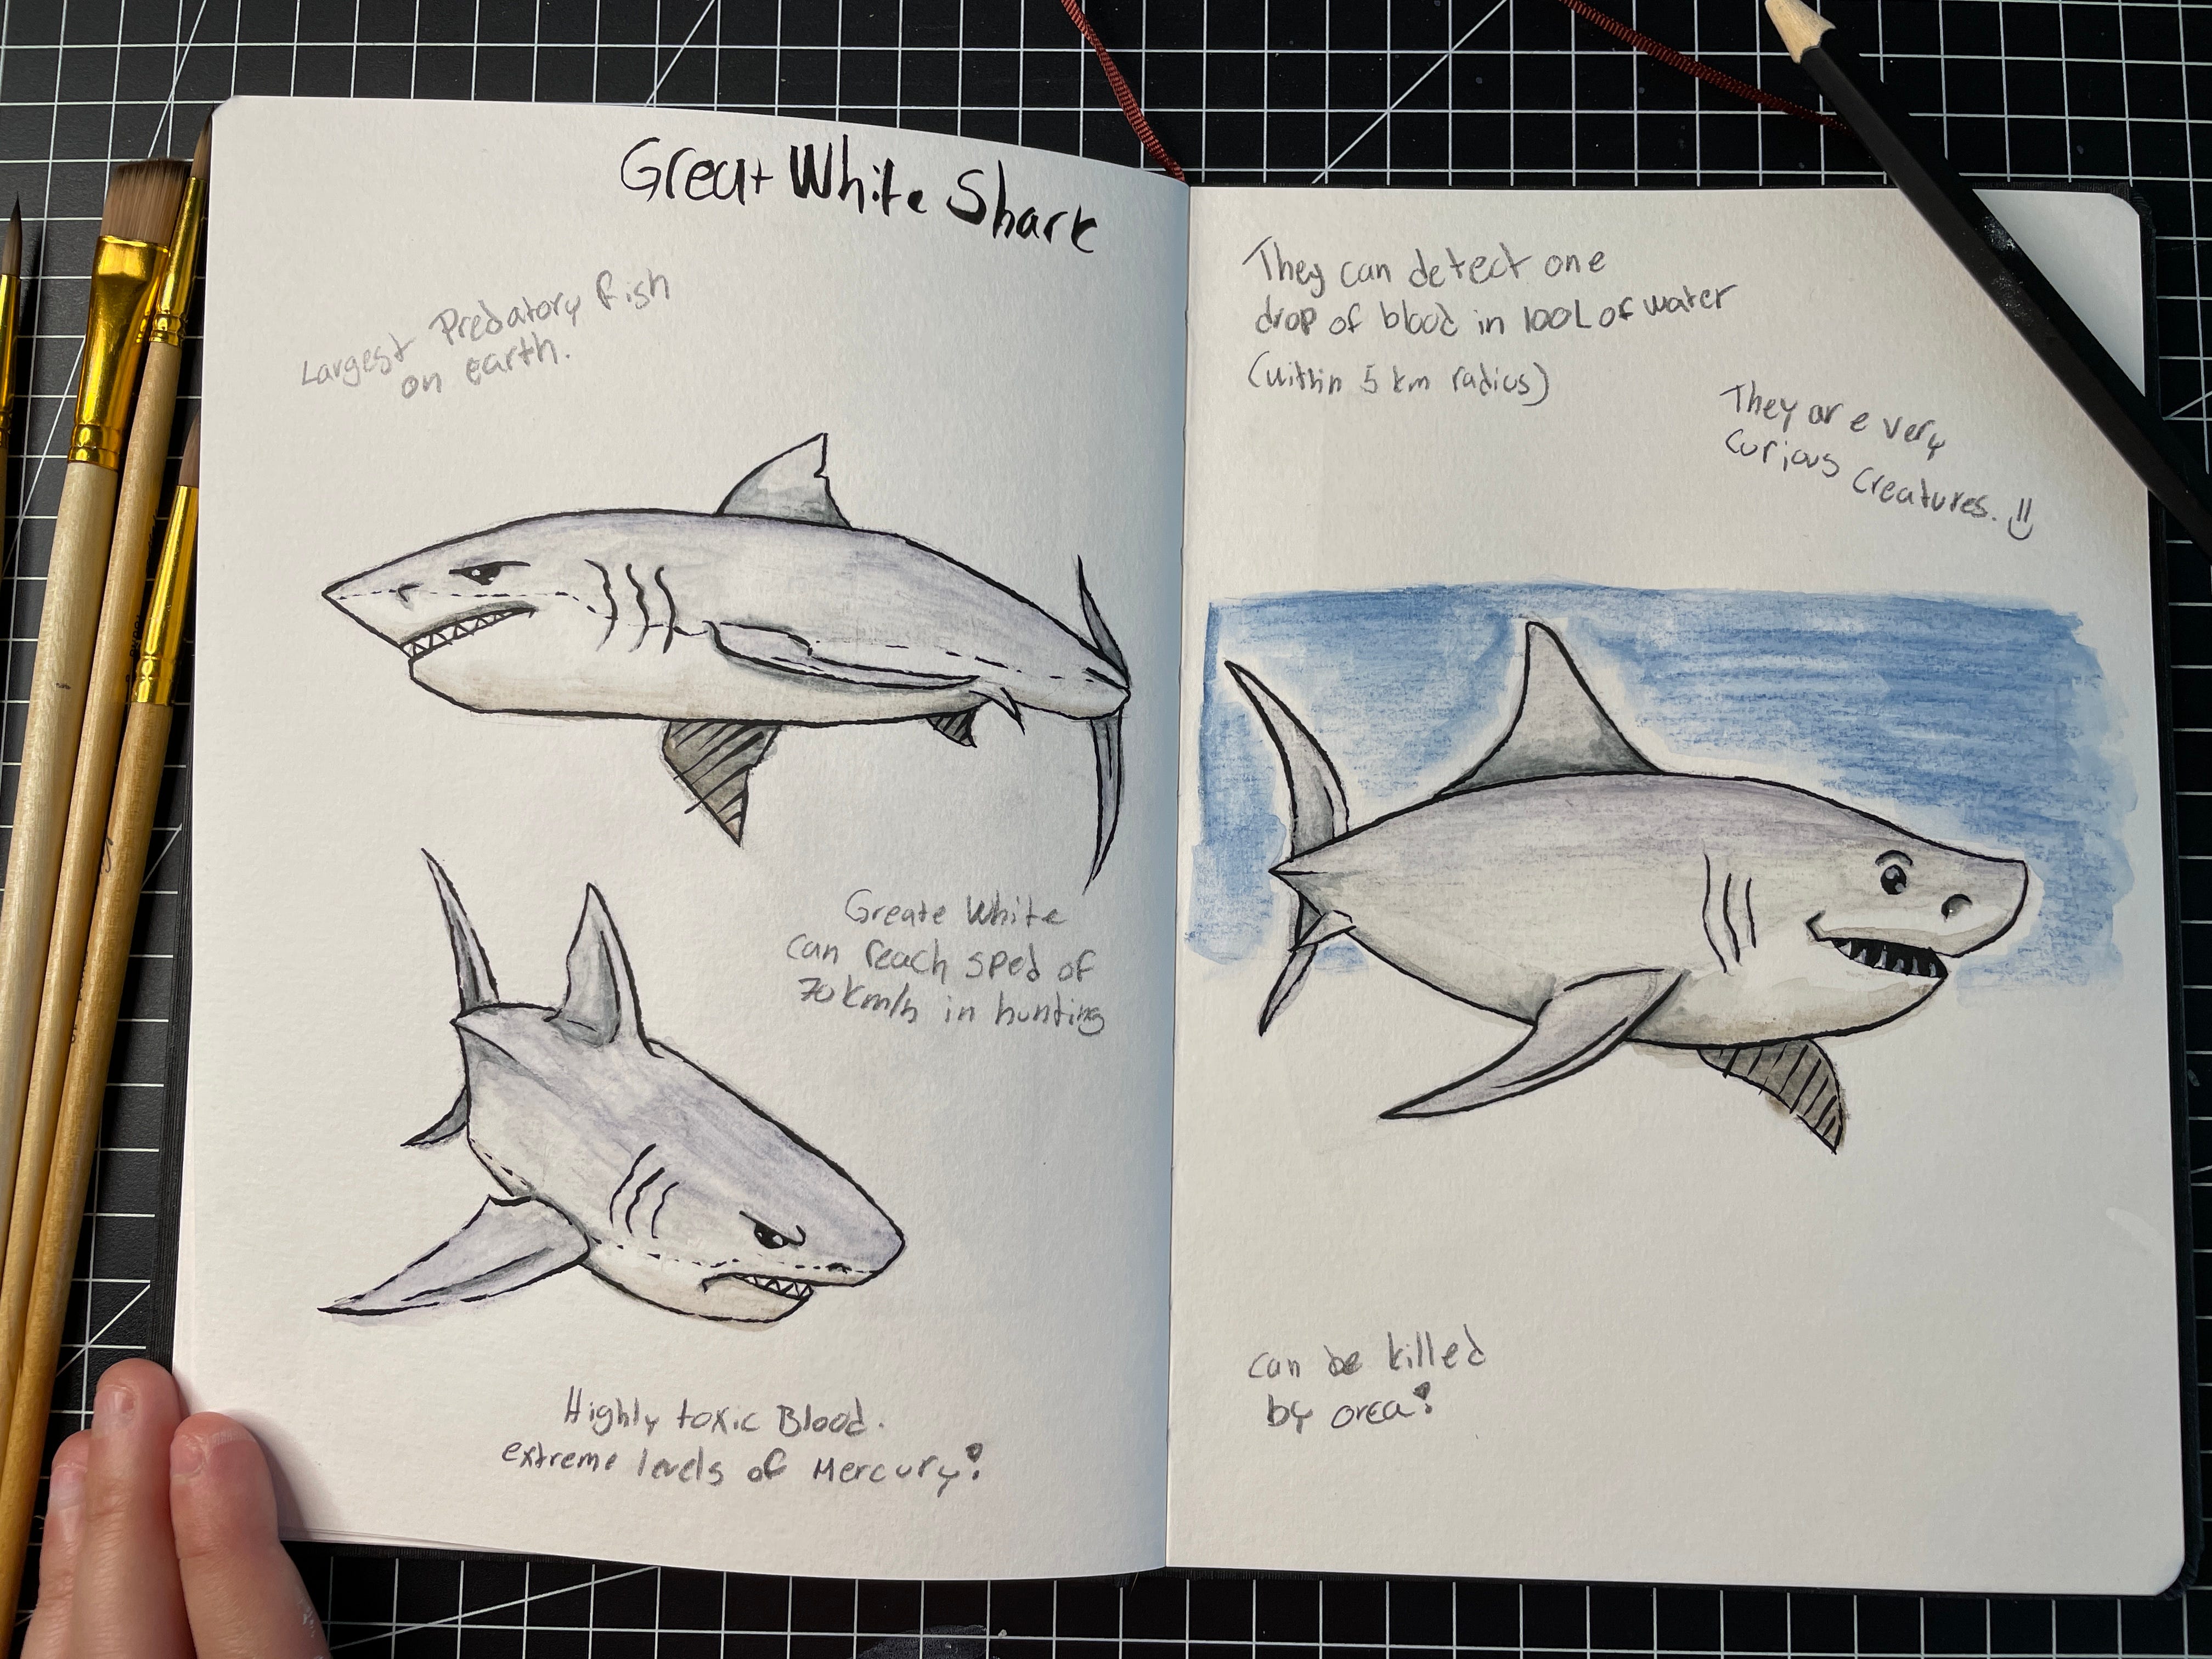 Great White Shark
Largest Predatory fish
on earth.
Greate White
can reach sped of
70km/h in hunting
Highly toxic Blood.
extreme levels of Mercury!
They can detect one
drop of blood in 100L of water
(within 5 km radius)
They are very
curious creatures.
can be killed
by orca!